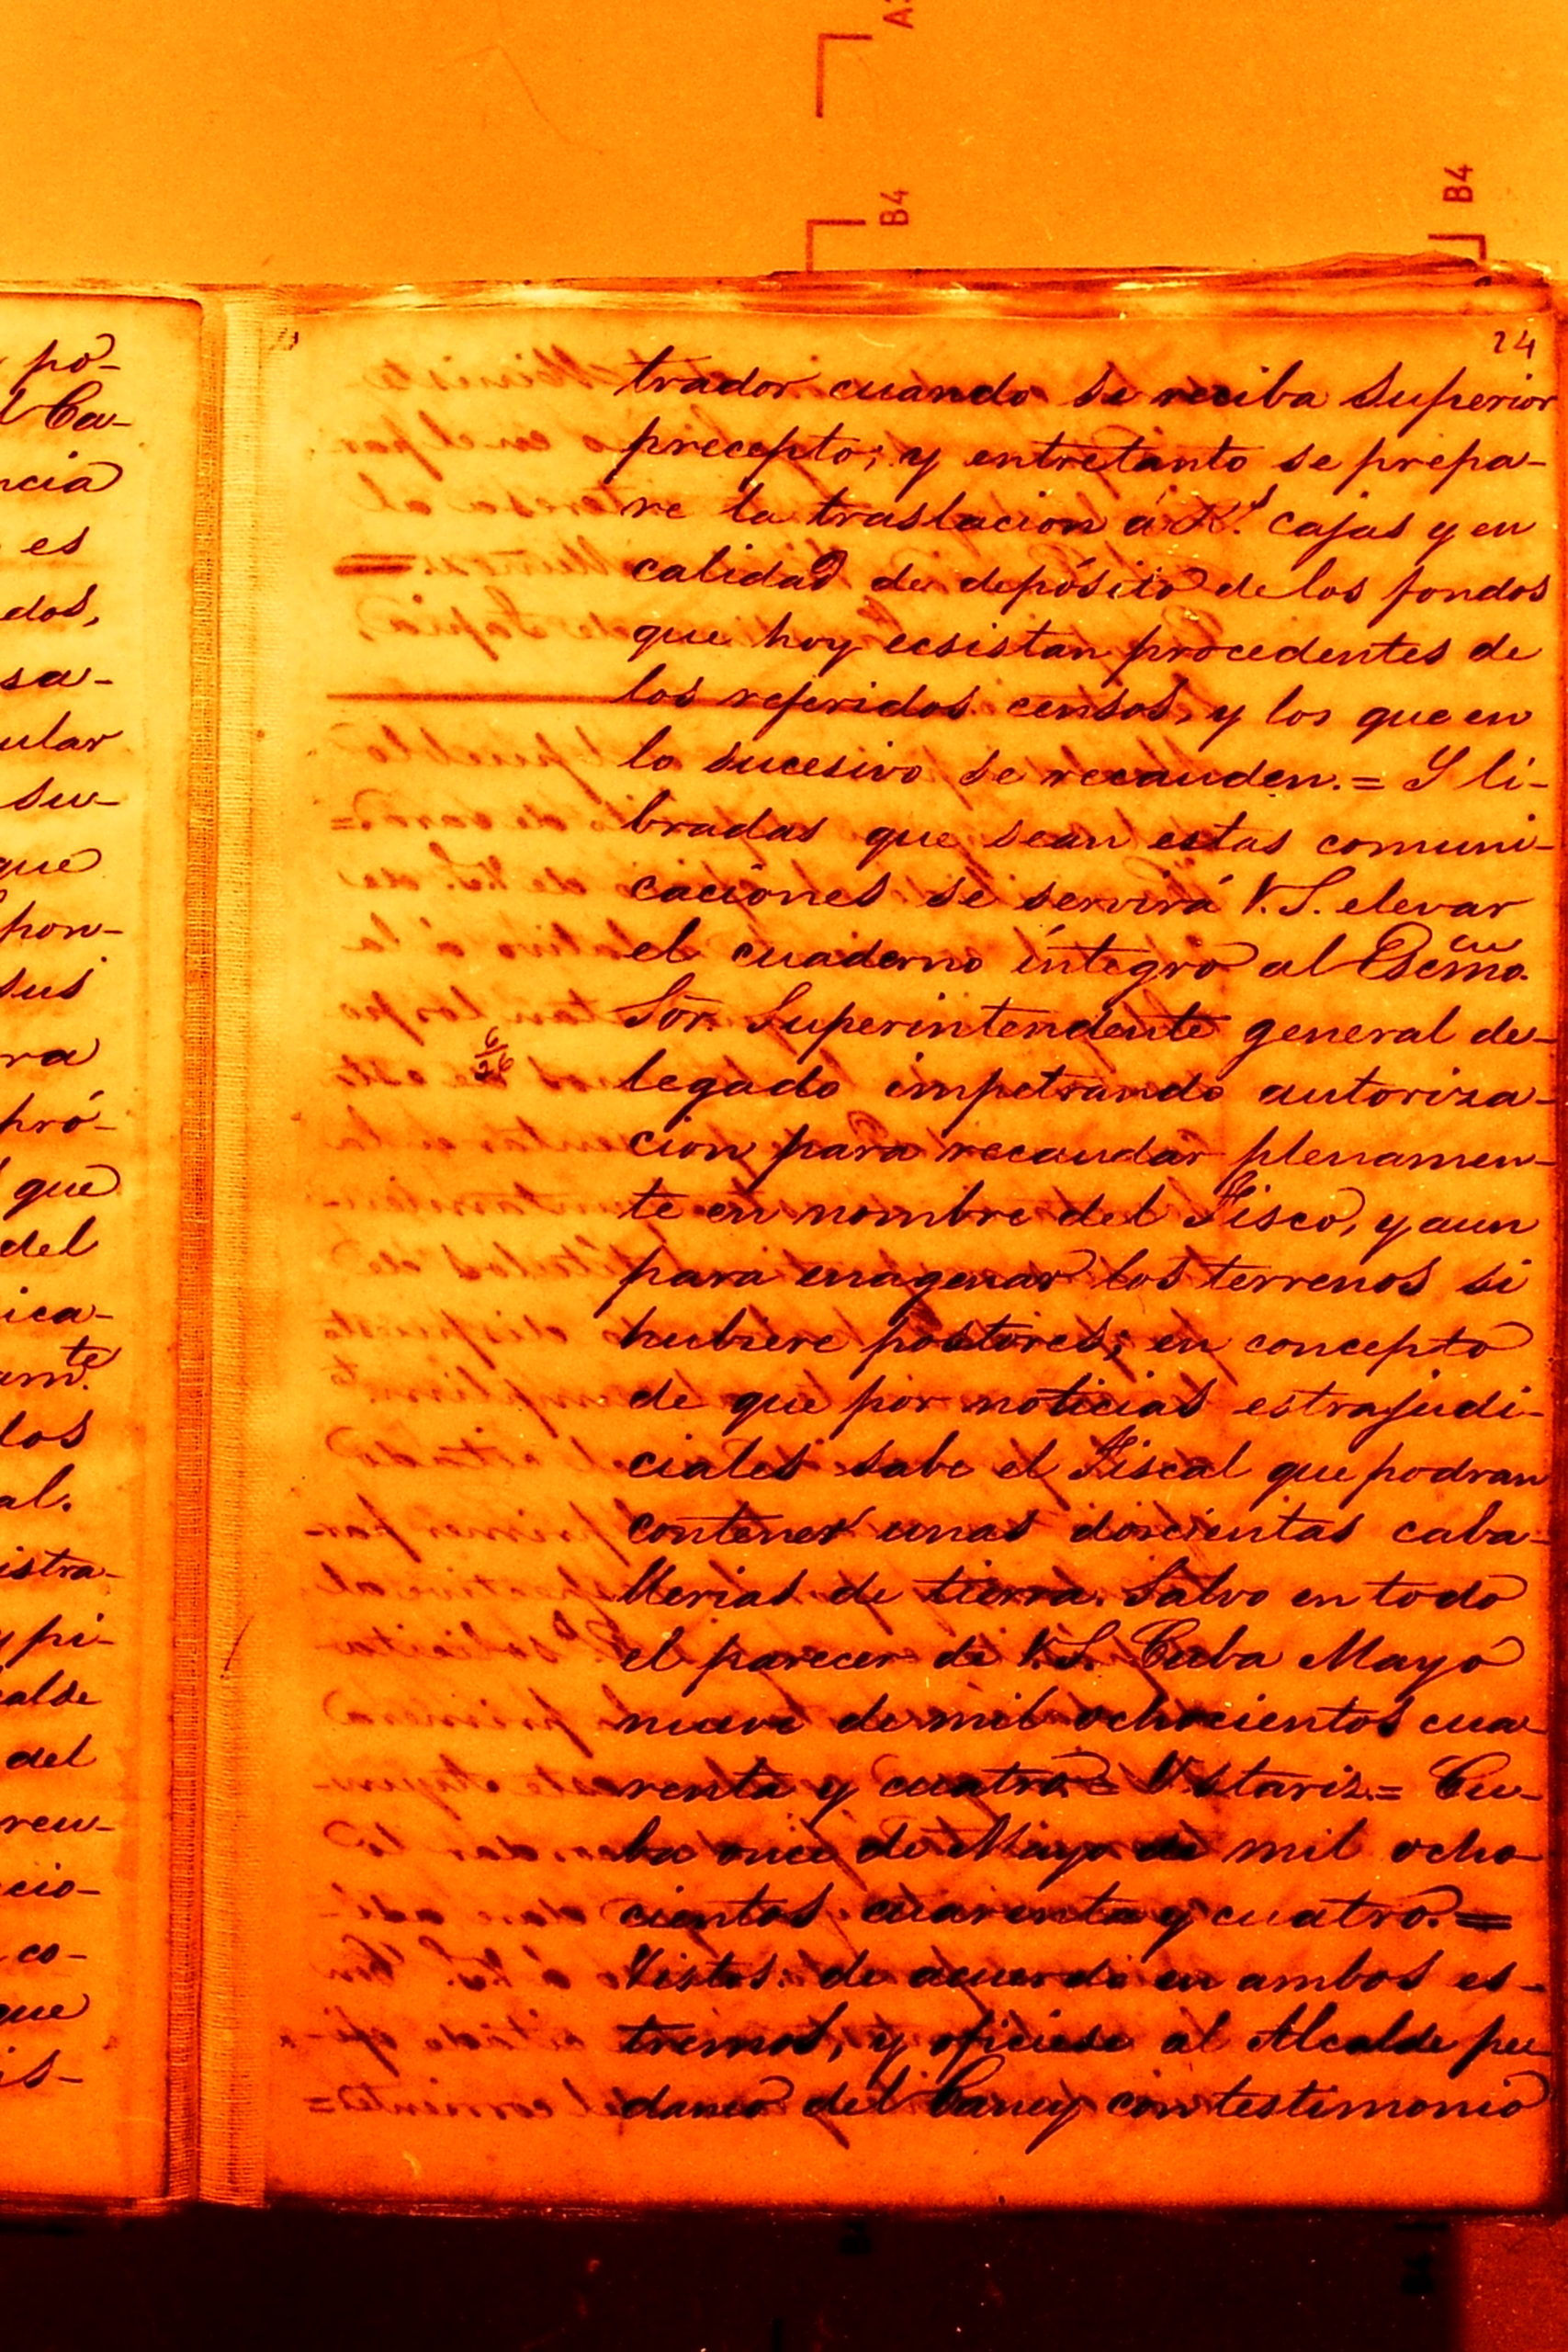 A3
B4
B4
po-
l Ca-
ncia
es
edos,
sa-
ular
su-
que
pon-
sus
ra
pró-
que
del
ica-
am.te
los
al.
istra-
y pi-
calde
del
reu-
cio-
co-
que
is-
24
trador cuando se reciba Superior
precepto; y entretanto se prepa-
re la traslacion á R.s cajas y en
calidad de depósito de los fondos
que hoy ecsistan procedentes de
los referidos censos, y los que en
lo sucesivo se recauden.= Y li-
bradas que sean estas comuni-
caciones se servirá V.S. elevar
el cuaderno íntegro al Escmo.
Sor. Superintendente general de-
6/26
legado impetrando autoriza-
cion para recaudar plenamen-
te en nombre del Fisco, y aun
para enagenar los terrenos si
hubiere postores; en concepto
de que por noticias estrajudi-
ciales sabe el Fiscal que podran
contener unas doscientas caba-
llerias de tierra. Salvo en todo
el parecer de V.S. Cuba Mayo
nueve de mil ochocientos cua-
renta y cuatro.= Ustariz.= Cu-
ba once de Mayo de mil ocho-
cientos cuarenta y cuatro.=
Vistos: de acuerdo en ambos es-
tremos, y oficiese al Alcalde pe-
daneo del Caney con testimonio